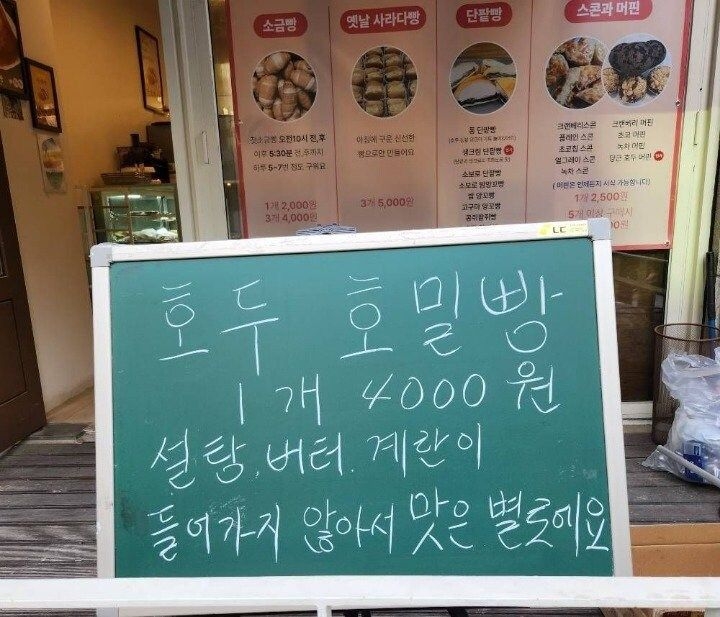 소금빵
옛날 사라다빵
단팥빵
스콘과 머핀
오전10시 전,후
이후 5:30분 전,후까지
하루 5~7번 정도 구워요
1개 2,000원
3개 4,000원
아침에 구운 신선한
빵으로만 만들어요
3개 5,000원
통 단팥빵
생크림 단팥빵
소보로 단팥빵
밤 앙꼬빵
고구마 앙꼬빵
크랜베리스콘
플레인 스콘
초코칩 스콘
얼그레이 스콘
녹차 스콘
크랜베리 머핀
초코 머핀
녹차 머핀
당근 호두 머핀
(머핀은 언제든지 시식 가능합니다)
1개 2,500원
5개 이상 구매시
호두 호밀빵
1개 4000원
설탕. 버터. 계란이
들어가지 않아서 맛은 별로에요